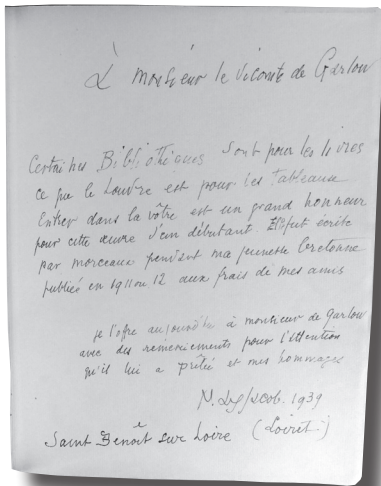 À Monsieur le Vicomte de Garlou
Certaines Bibliothèques sont pour les livres
ce que le Louvre est pour les Tableaux
Entrer dans la vôtre est un grand honneur
pour cette œuvre d'un débutant. Elle fut écrite
par morceaux pendant ma jeunesse
publiée en 1911 ou 12 aux frais de mes amis
je l'offre aujourd'hui à monsieur de Garlou
avec des remerciements pour l'attention
qu'il lui a prêtée et mes hommages
1939
Saint Benoît sur Loire (Loiret)